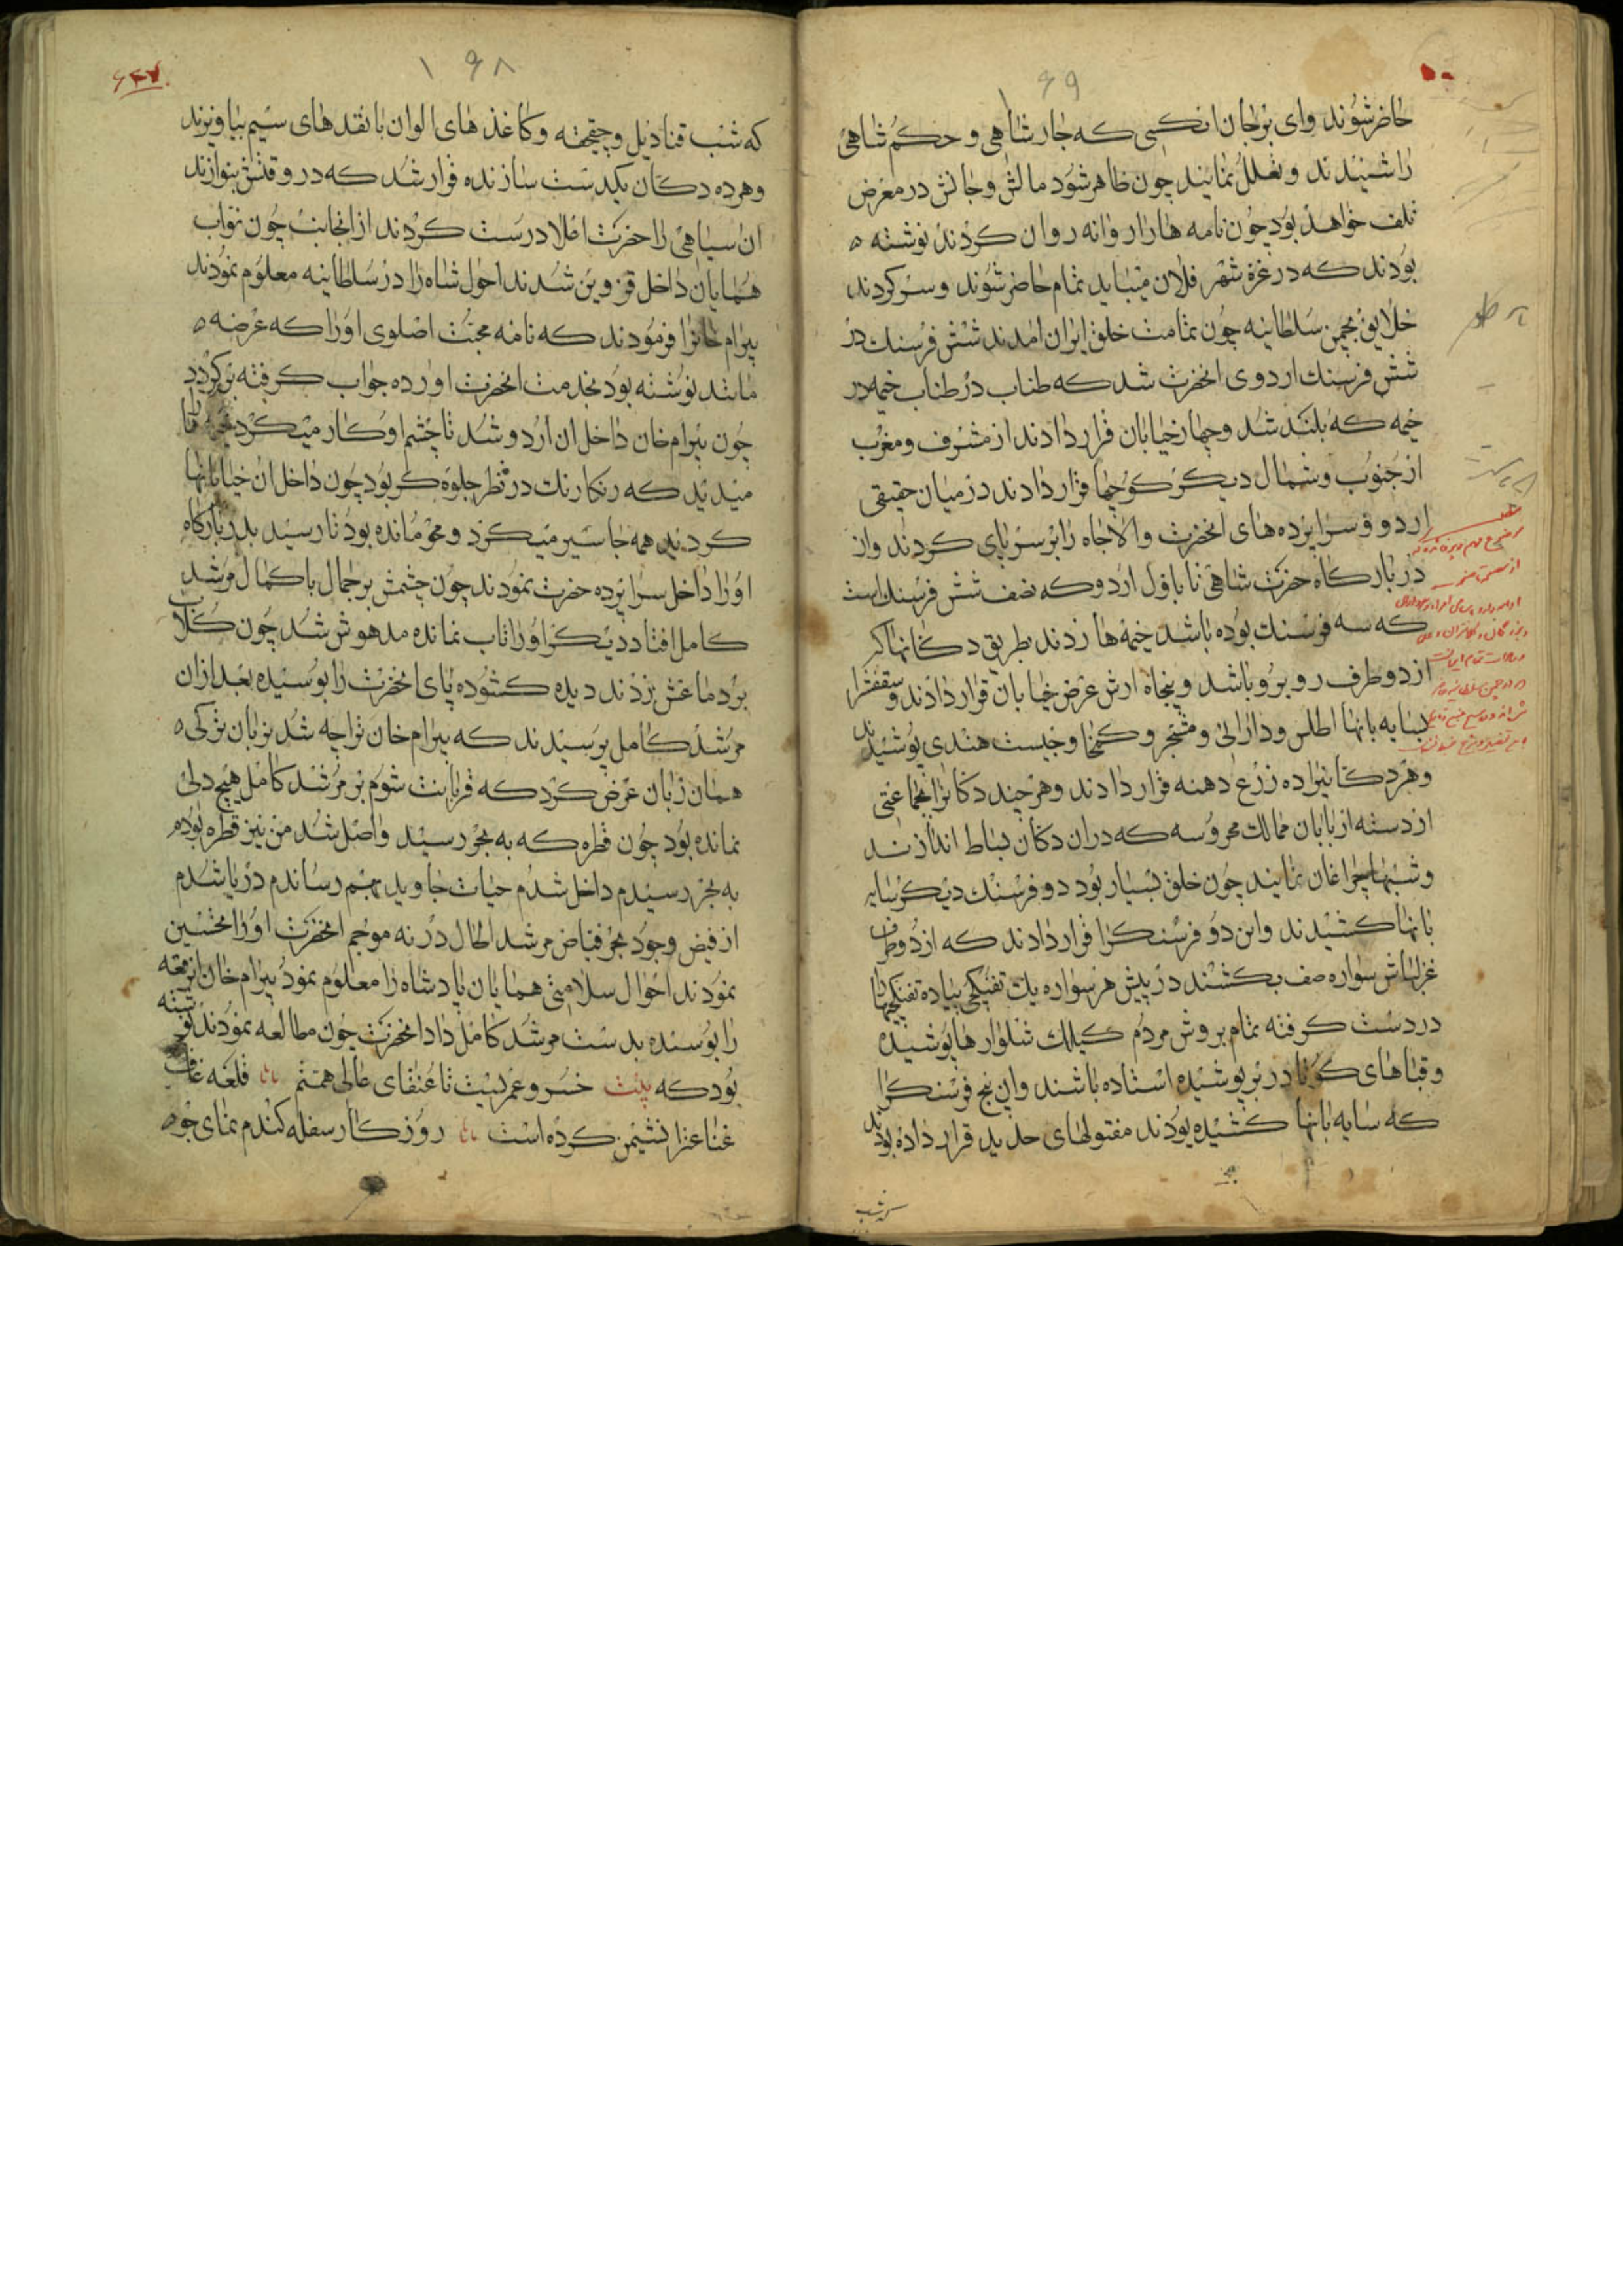 ۱۶۹
حاضر شوند وای بر جان انکسی که جار شاهی و حکم شاهی
را شنیدند و تعلل نمایند چون ظاهر شود مالش و جانش در معرض
تلف خواهد بود چون نامه ها را روانه روان کردند نوشته
بودند که در غرة شهر فلان میباید تمام حاضر شوند و سر کردند
خلایق بچمن سلطانیه چون تمامت خلق ایران امدند شش فرسنک در
شش فرسنک اردوی انحضرت شد که طناب در طناب خیمه در
خیمه که بلند شد و چهار خیابان قرار دادند از مشرف و مغرب
از جنوب و شمال دیکر کوچها قرار دادند در میان حقیقی
اردو و سراپرده های انحضرت والاجاه را بر سر پای کردند و از
در بارکاه حضرت شاهی تا باول اردو که نصف شش فرسنک است
که سه فرسنک بوده باشد خیمه ها زدند بطریق دکانها که
از دو طرف رو برو باشد و پنجاه ارش عرض خیابان قرار دادند و سقفش را
بسایه بانها اطلس و دارائی و مشجر و کمخا و چیت هندی پوشیدند
و هر دکانیرا ده زرع دهنه قرار دادند و هر چند دکانرا بجماعتی
از دسته از بابان ممالک محروسه که دران دکان بساط اندازند
و شبها چراغان نمایند چون خلق بسیار بود دو فرسنک دیکر سایه
بانها کشیدند و این دو فرسنک را قرار دادند که از دو طرف
غزلباش سواره صف بکشند در پیش هر سواره یک تفنکچی پیاده تفنکچیها
در دست کرفته تمام بروش مردم کیلک شلوارها پوشیده
و قباهای کوتا در بر پوشیده استاده باشند و این پنج فرسنک را
که سایه بانها کشیده بودند مفتولهای حدید قرار داده بودند
که شب
۱۶۸
که شب قنادیل و چیقچه و کاغذ های الوان با نقد های سیم بیاویزند
و هر ده دکان یکدست سازنده قرار شد که در وقتش بنوازند
ان سیاهی را حضرت اعلا درست کردند از انجانب چون نواب
همایان داخل قزوین شدند احوال شاه را در سلطانیه معلوم نمودند
بیرام خانرا فرمودند که نامه محبت اصلوی اورا که عرضه
مانند نوشته بود بخدمت انحضرت اورده جواب کرفته برکردد
چون بیرام خان داخل ان اردو شد تا چشم او کار میکرد
میدید که رنکارنک در نظر جلوه کر بود چون داخل ان خیابانها
کردید همه جا سیر میکرد و محو مانده بود تا رسید بدر بارکاه
اورا داخل سراپرده حضرت نمودند چون چشمش بر جمال با کمال مرشد
کامل افتاد دیکر اورا تاب نمانده مدهوش شد چون کلاب
بر دماغش زدند دیده کشوده پای انحضرت را بوسیده بعد از ان
مرشد کامل پرسیدند که بیرام خان ترا چه شد بزبان ترکی
همان زبان عرض کرد که قربانت شوم بر مرشد کامل هیچ دلی
نمانده بود چون قطره که به بحر رسید واصل شد من نیز قطره بودم
به بحر رسیدم داخل شدم حیات جاوید بهم رساندم دریا شدم
از فیض وجود بحر فیاض مرشد الحال در نه موجم انحضرت اورا تحسین
نمودند احوال سلامتی همایان پادشاه را معلوم نمود بیرام خان ان رقعه
را بوسیده بدست مرشد کامل داد انحضرت چون مطالعه نمودند نوشته
بود که بیت خسروعمریست تا عنقای عالی همتم قلعه قاف
غناعترا نشیمن کرده است روزکار سفله کندم نمای جو